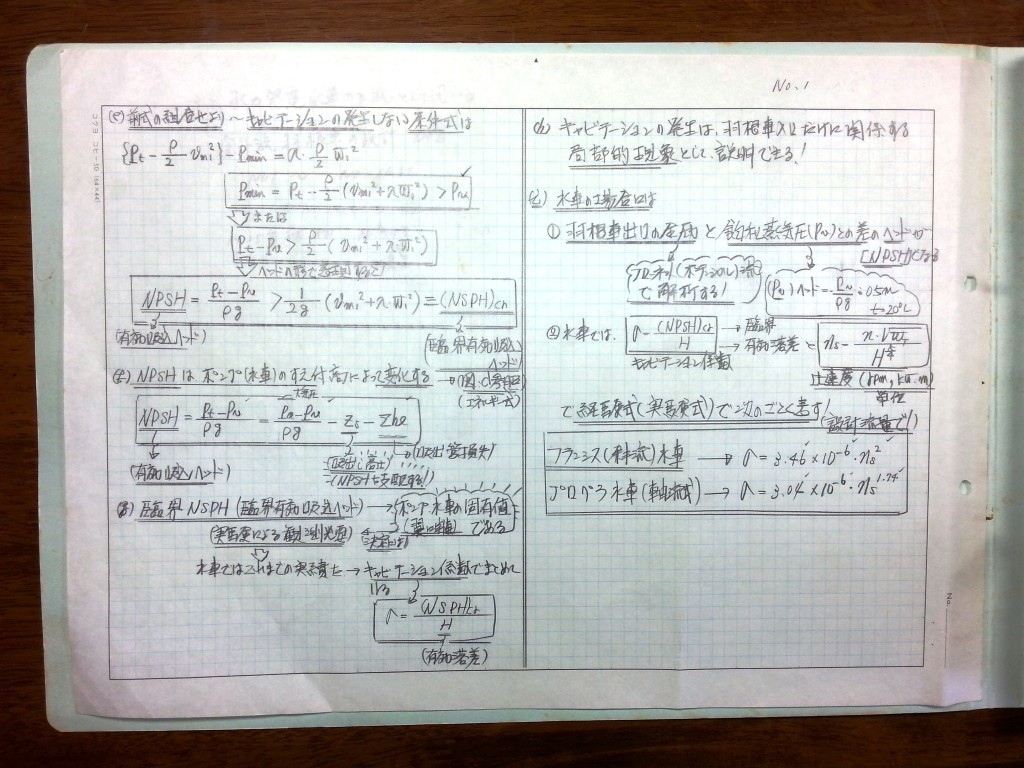 No.1
前式の
キャビテーションの発生しない条件式は
{Pt - ρ/2 Vm₁²} - Pmin = λ・ρ/2 w₁²
Pmin = Pt - ρ/2 (Vm₁² + λ w₁²) > Pv
または
Pt - Pv > ρ/2 (Vm₁² + λ・w₁²)
ヘッドの形で
NPSH = (Pt - Pv)/ρg > 1/2g (Vm₁² + λ w₁²) = (NSPH)cr
(有効吸込ヘッド)
(臨界有効吸込ヘッド)
NPSHは、ポンプ(水車)のすえ付高によって変化する
大気圧
NPSH = (Pt - Pv)/ρg = (Pa - Pv)/ρg - Zs - Σhe
(有効吸込ヘッド)
(吸出し高さ)
(吸出管損失)
(NPSHを支配する)
臨界NSPH(臨界有効吸込ヘッド) → ポンプ水車の固有値である
(実馬
水車では 実績を → キャビテーション係数でまとめている
σ = (NSPH)cr/H
(有効落差)
(h) キャビテーションの発生は、羽根車入口だけに関係する
局部的現象として、説明できる!
水車の場合は
① 羽根車出口の全圧と飽和蒸気圧(Pv)との差のヘッドが
[NPSH]となる
(ポテンシャル)流
で解析する!
(Pv)ヘッド = Pv/ρg = 0.5m
t=20℃
② 水車では、
σ = (NPSH)cr/H → 臨界
→ 有効落差
キャビテーション係数
ns = n・√w/H^(5/4)
比速度 (rpm, kw, m)
単位
で経験式(実験式)で次のごとく表す!
(設計流量で!)
フランシス(斜流)水車 → σ = 3.46×10⁻⁶・ns²
プロペラ水車(軸流式) → σ = 3.04×10⁻⁶・ns^1.74